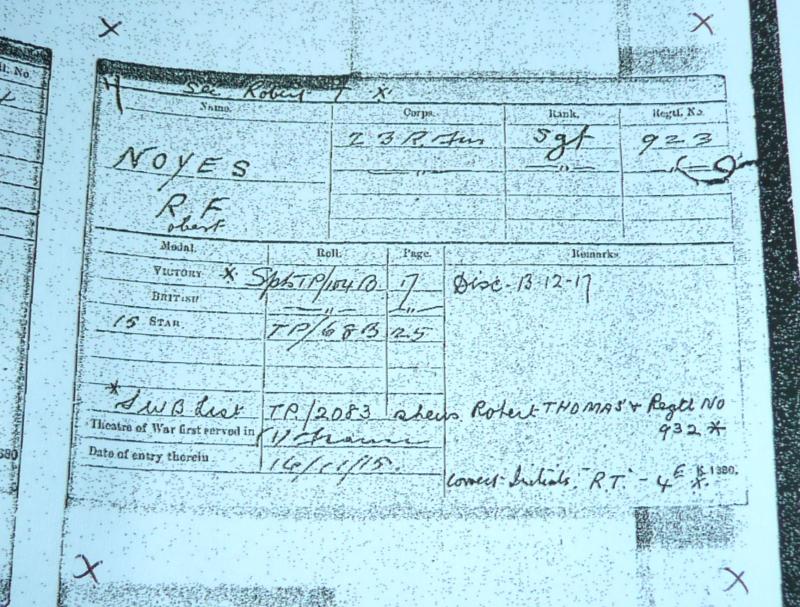 ll. No
See Robert T X
Name. Corps. Rank. Regtl. No.
NOYES 23 R Fus Sgt 923
R F
obert
Medal. Roll. Page. Remarks
VICTORY X TP/104B 17 Disc. 13-12-17
BRITISH
15 STAR TP/68B 25
* SWB List TP/2083 shews Robert THOMAS & Regtl No
932 *
Theatre of War first served in (1) France
Date of entry therein 16/11/15.
Correct Initials. "R.T." - K. 1380.
380